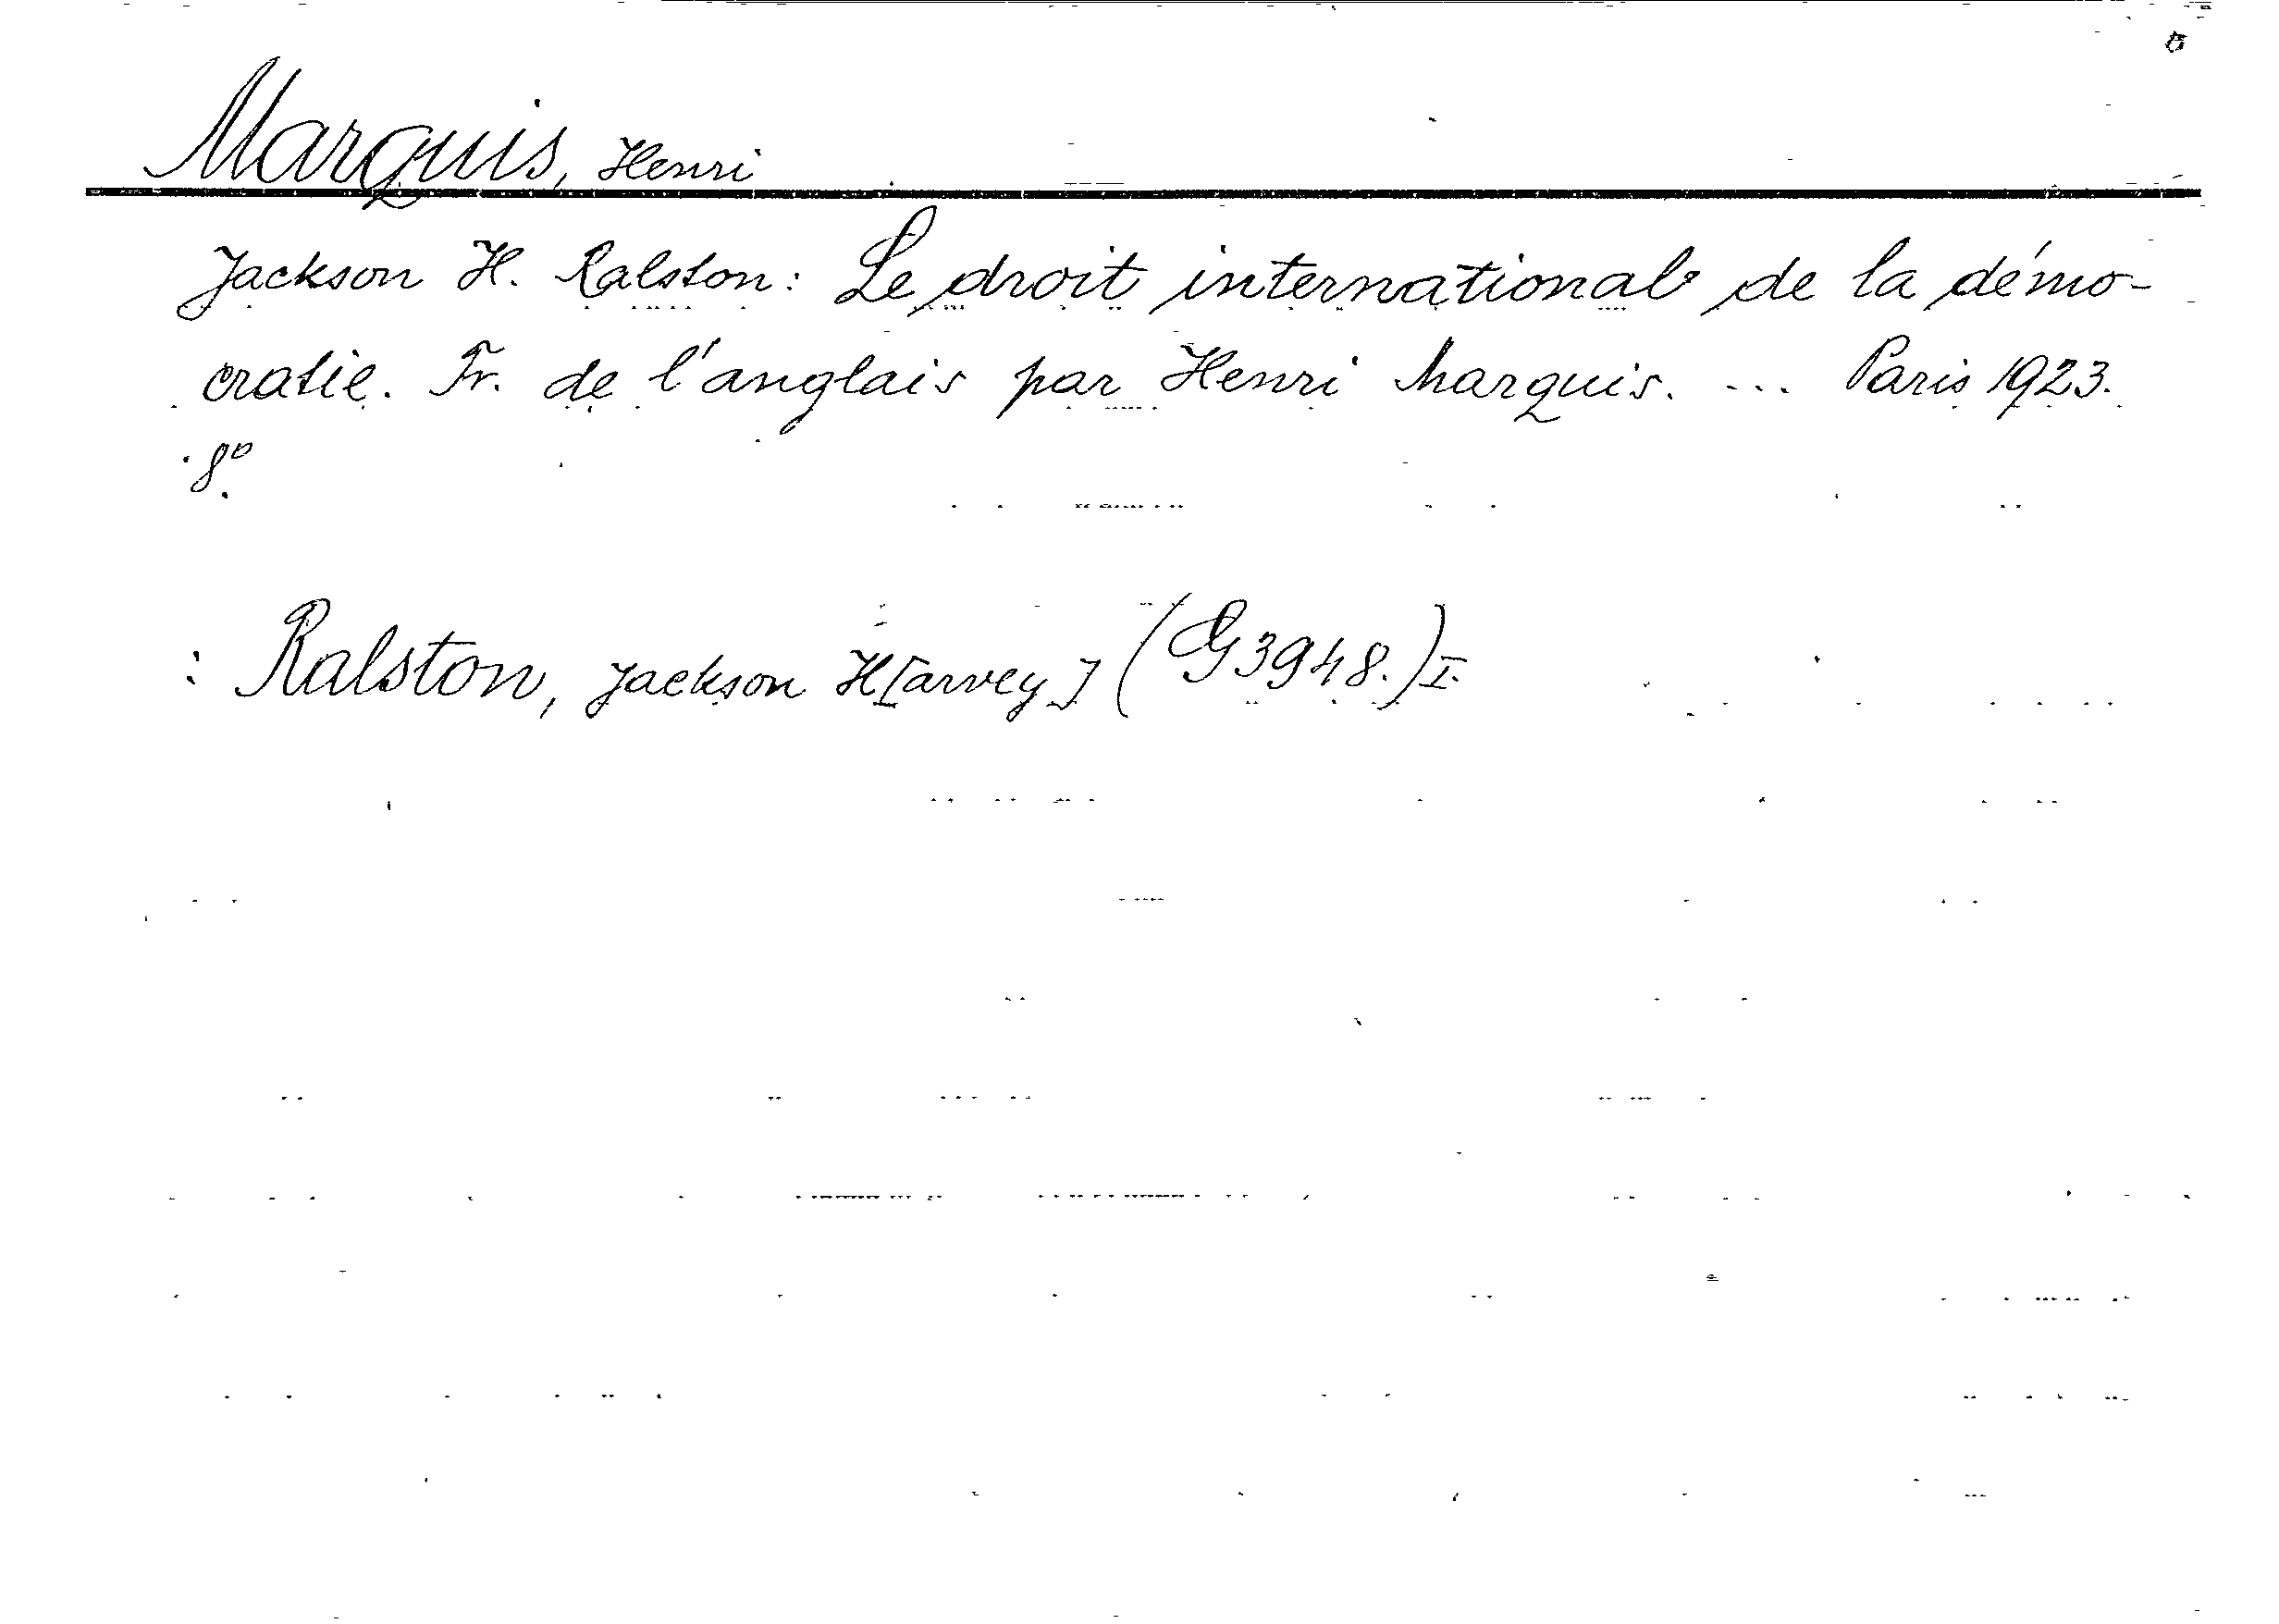 Marquis, Henri
Jackson H. Ralston: Le droit international de la démo-
cratie. Tr. de l'anglais par Henri Marquis. ... Paris 1923.
8°.
: Ralston, Jackson H[arvey] (G 3948.) I.